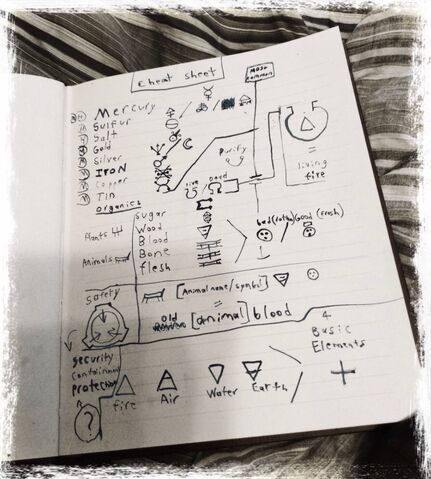 Cheat sheet
Most common
Mercury
Sulfur
Salt
Gold
Silver
IRON
Copper
Tin
organics
Purify
living fire
=
Plants
Animals
Sugar
Wood
Blood
Bone
flesh
Good (fresh)
Safety
[Animal name/symbol]
=
[animal] blood
Security
Protection
?
fire
Air
Water
Earth
4
Basic
Elements